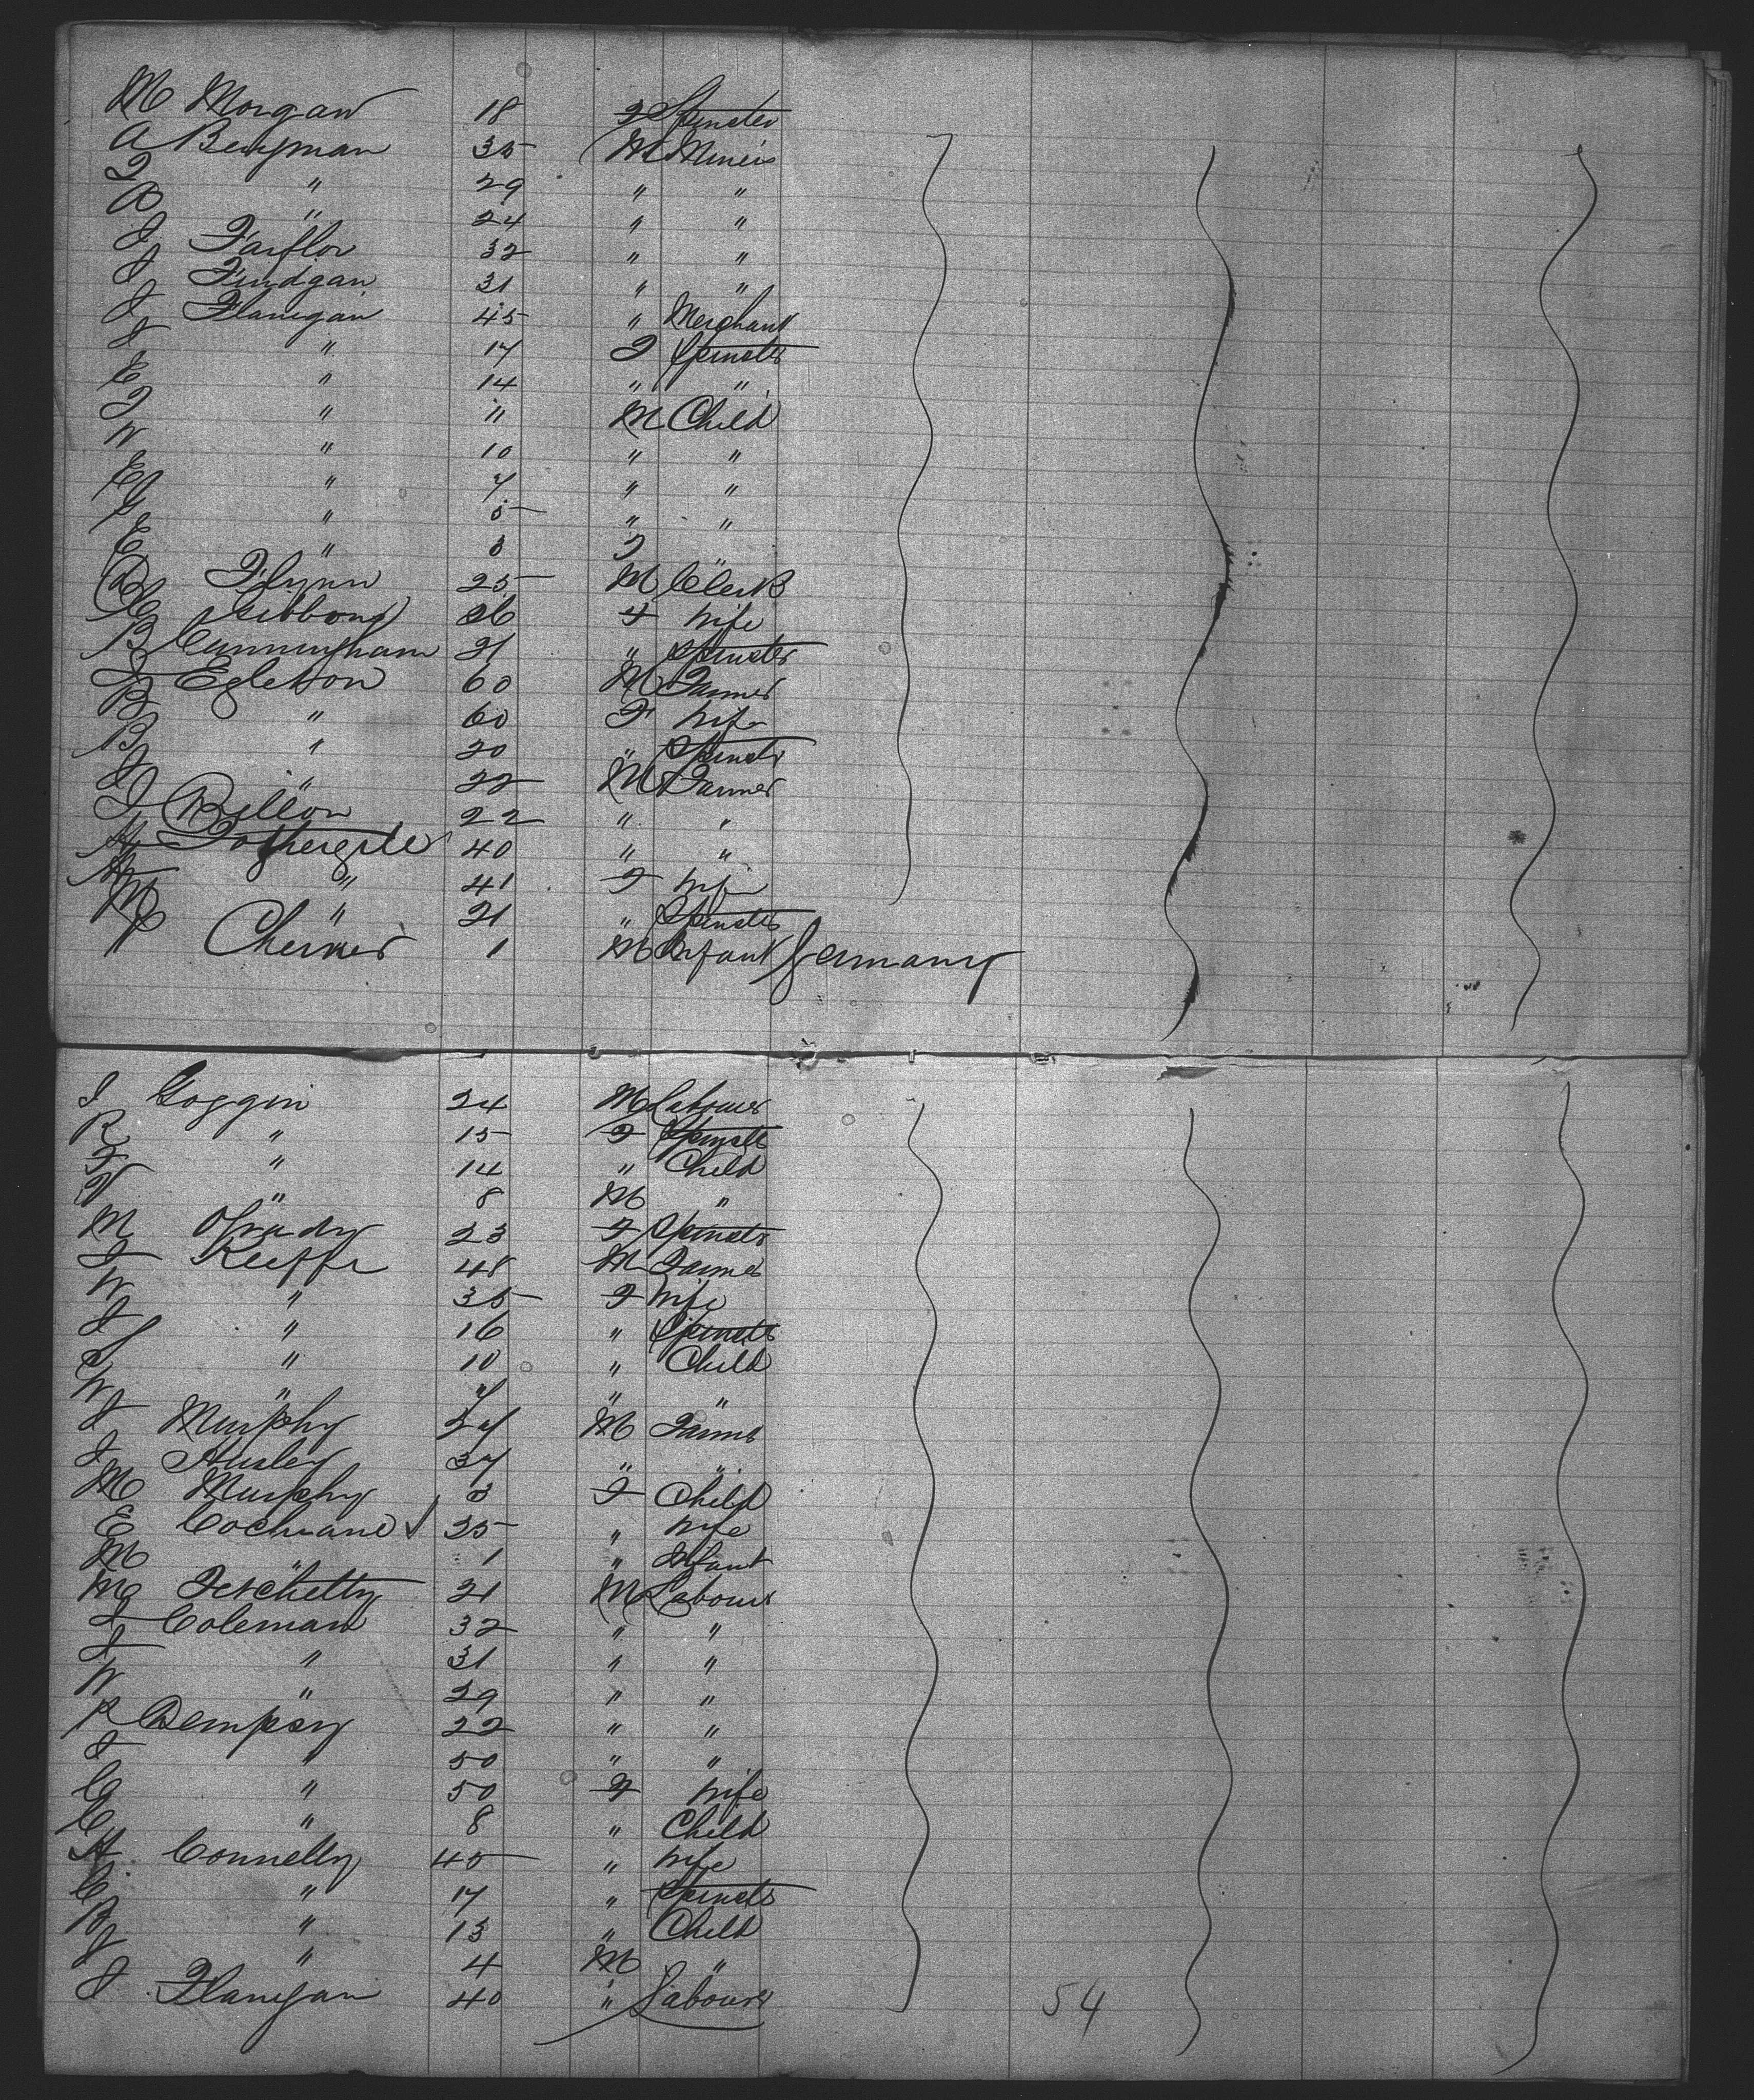 M Morgan 18 F Spinster
A Bergman 35 M Miners
" 29 " "
B " 24 " "
J 32 " "
J Findgan 31 " "
J Flanigan 45 " Merchant
J " 17 F Spinster
E " 14 " "
T " 11 M Child
W " 10 " "
" 7 " "
" 5 " "
E " 3 F "
Flynn 25 M Clerk
Gibbons 26 F Wife
B Cunningham 21 " Spinster
J Egleton 60 M Farmer
B " 60 F Wife
B " 20 " Spinster
J " 22 M Farmer
J 22 " "
40 " "
" 41 F Wife
M " 21 " Spinster
1 M Infant Germany
J Goggin 24 M Labourer
R " 15 F Spinster
" 14 " Child
" 8 M "
M OGrady 23 F Spinster
J Keeffe 48 M Farmer
W " 35 F Wife
J " 16 " Spinster
" 10 " Child
W " 7 " "
J Murphy M Farmer
J 37 " "
M Murphy 3 F Child
E Cochrane ✓ 25 " Wife
M " 1 " Infant
Mc 21 M Labourer
J Coleman 32 " "
J " 31 " "
W " 29 " "
P Dempsy 22 " "
J " 50 " "
C " 50 F Wife
C " 8 " Child
A Connelly 45 " Wife
C " 17 " Spinster
B " 13 " Child
J " 4 M "
J Flanigan 40 " Labourer
54